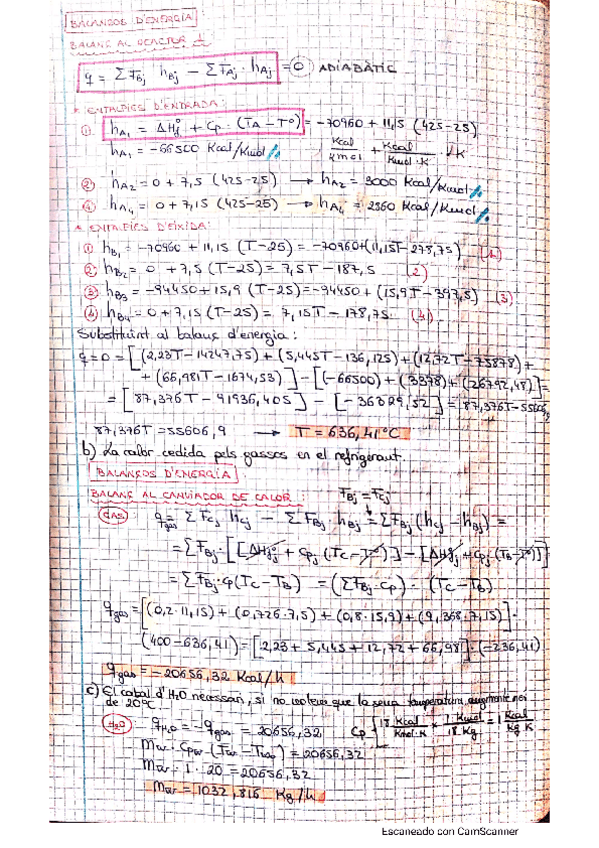 BALANÇOS D'ENERGIA
BALANÇ AL REACTOR 1
q = ΣF_Bj h_Bj - ΣF_Aj · h_Aj = 0 ADIABÀTIC
* ENTALPIES D'ENTRADA:
① h_A1 = ΔH_fj° + Cp · (TA - T°) = -70960 + 11,15 (425-25)
h_A1 = -66500 Kcal/Kmol Kcal/kmol + Kcal/Kmol·K · K
② h_A2 = 0 + 7,5 (425-25) → h_A2 = 3000 Kcal/Kmol
④ h_A4 = 0 + 7,15 (425-25) → h_A4 = 2860 Kcal/Kmol
* ENTALPIES D'EIXIDA:
① h_B1 = -70960 + 11,15 (T-25) = -70960+(11,15T-278,75) (1)
② h_B2 = 0 + 7,5 (T-25) = 7,5T - 187,5 (2)
③ h_B3 = -94450 + 15,9 (T-25) = -94450 + (15,9T - 397,5) (3)
④ h_B4 = 0 + 7,15 (T-25) = 7,15T - 178,75 (4)
Substituint al balanç d'energia:
q=0= [(2,23T-14247,75) + (5,445T-136,125) + (12,72T-75878) +
+ (66,981T-1674,53)] - [(-66500) + (3378) + (26792,48)] =
= [87,376T - 91936,405] - [-36329,52] = 87,376T-55606,9
87,376T = 55606,9 → T = 636,41°C
b) La calor cedida pels gassos en el refrigerant.
BALANÇOS D'ENERGIA
BALANÇ AL CANVIADOR DE CALOR: F_Bj = F_Cj
GAS q_gas = ΣF_Cj h_Cj - ΣF_Bj h_Bj = ΣF_Bj (h_Cj - h_Bj) =
= ΣF_Bj · [[ΔH_fj° + Cp_j (TC-T°)] - [ΔH_fj° + Cp_j (TB-T°)]]
= ΣF_Bj · Cp (TC-TB) = (ΣF_Bj · Cp) · (TC-TB)
q_gas = [(0,2·11,15) + (0,726·7,5) + (0,8·15,9) + (9,368·7,15)] ·
(400-636,41) = [2,23 + 5,445 + 12,72 + 66,98] · (-236,41)
q_gas = -20656,32 Kcal/h
c) El cabal d'H2O necessari, si no volem que la seua temperatura augmente més
de 20°C.
H2O q_H2O = -q_gas = 20656,32 Cp [18 Kcal/Kmol·K × 1 Kmol/18 Kg = 1 Kcal/Kg K
m_w · Cp_w · (Tw - Tw0) = 20656,32
m_w · 1 · 20 = 20656,32
m_w = 1032,816 Kg/h
Escaneado con CamScanner